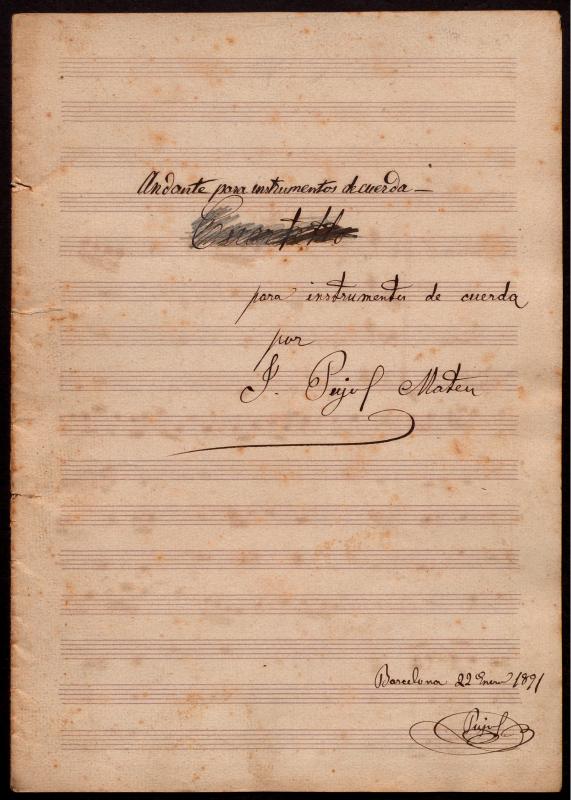 Andante para instrumentos de cuerda –
para instrumentos de cuerda
por
J. Pujol Mateu
Barcelona 22 Enero 1891
Pujol